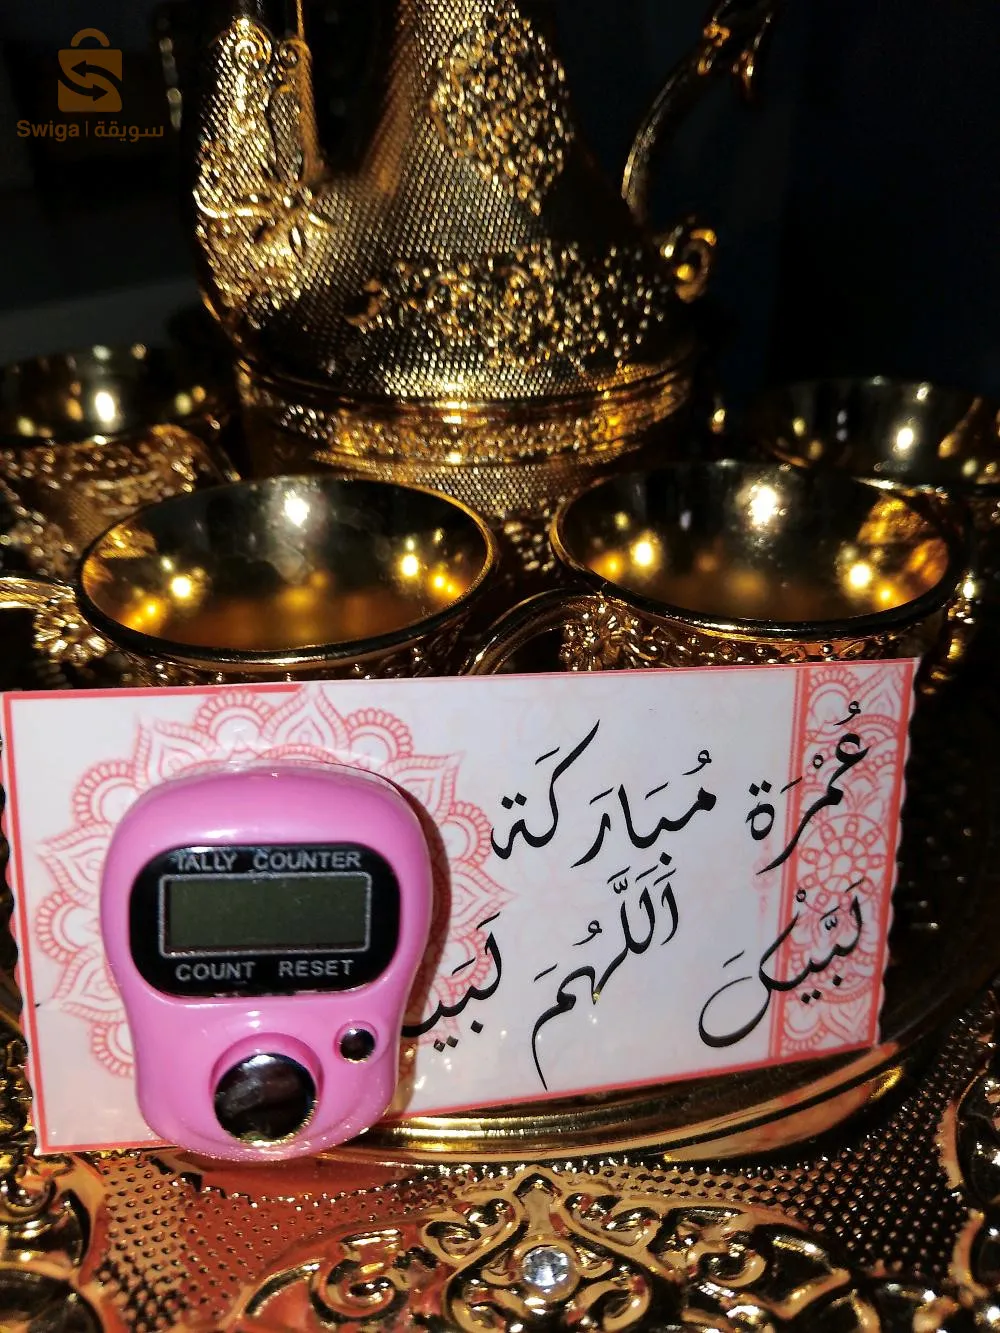 Swiga | سويقة
عُمْرَة مُبَارَكَة
لَبَّيْكَ اَللَّهُمَ لَبَيـ
TALLY COUNTER
COUNT RESET